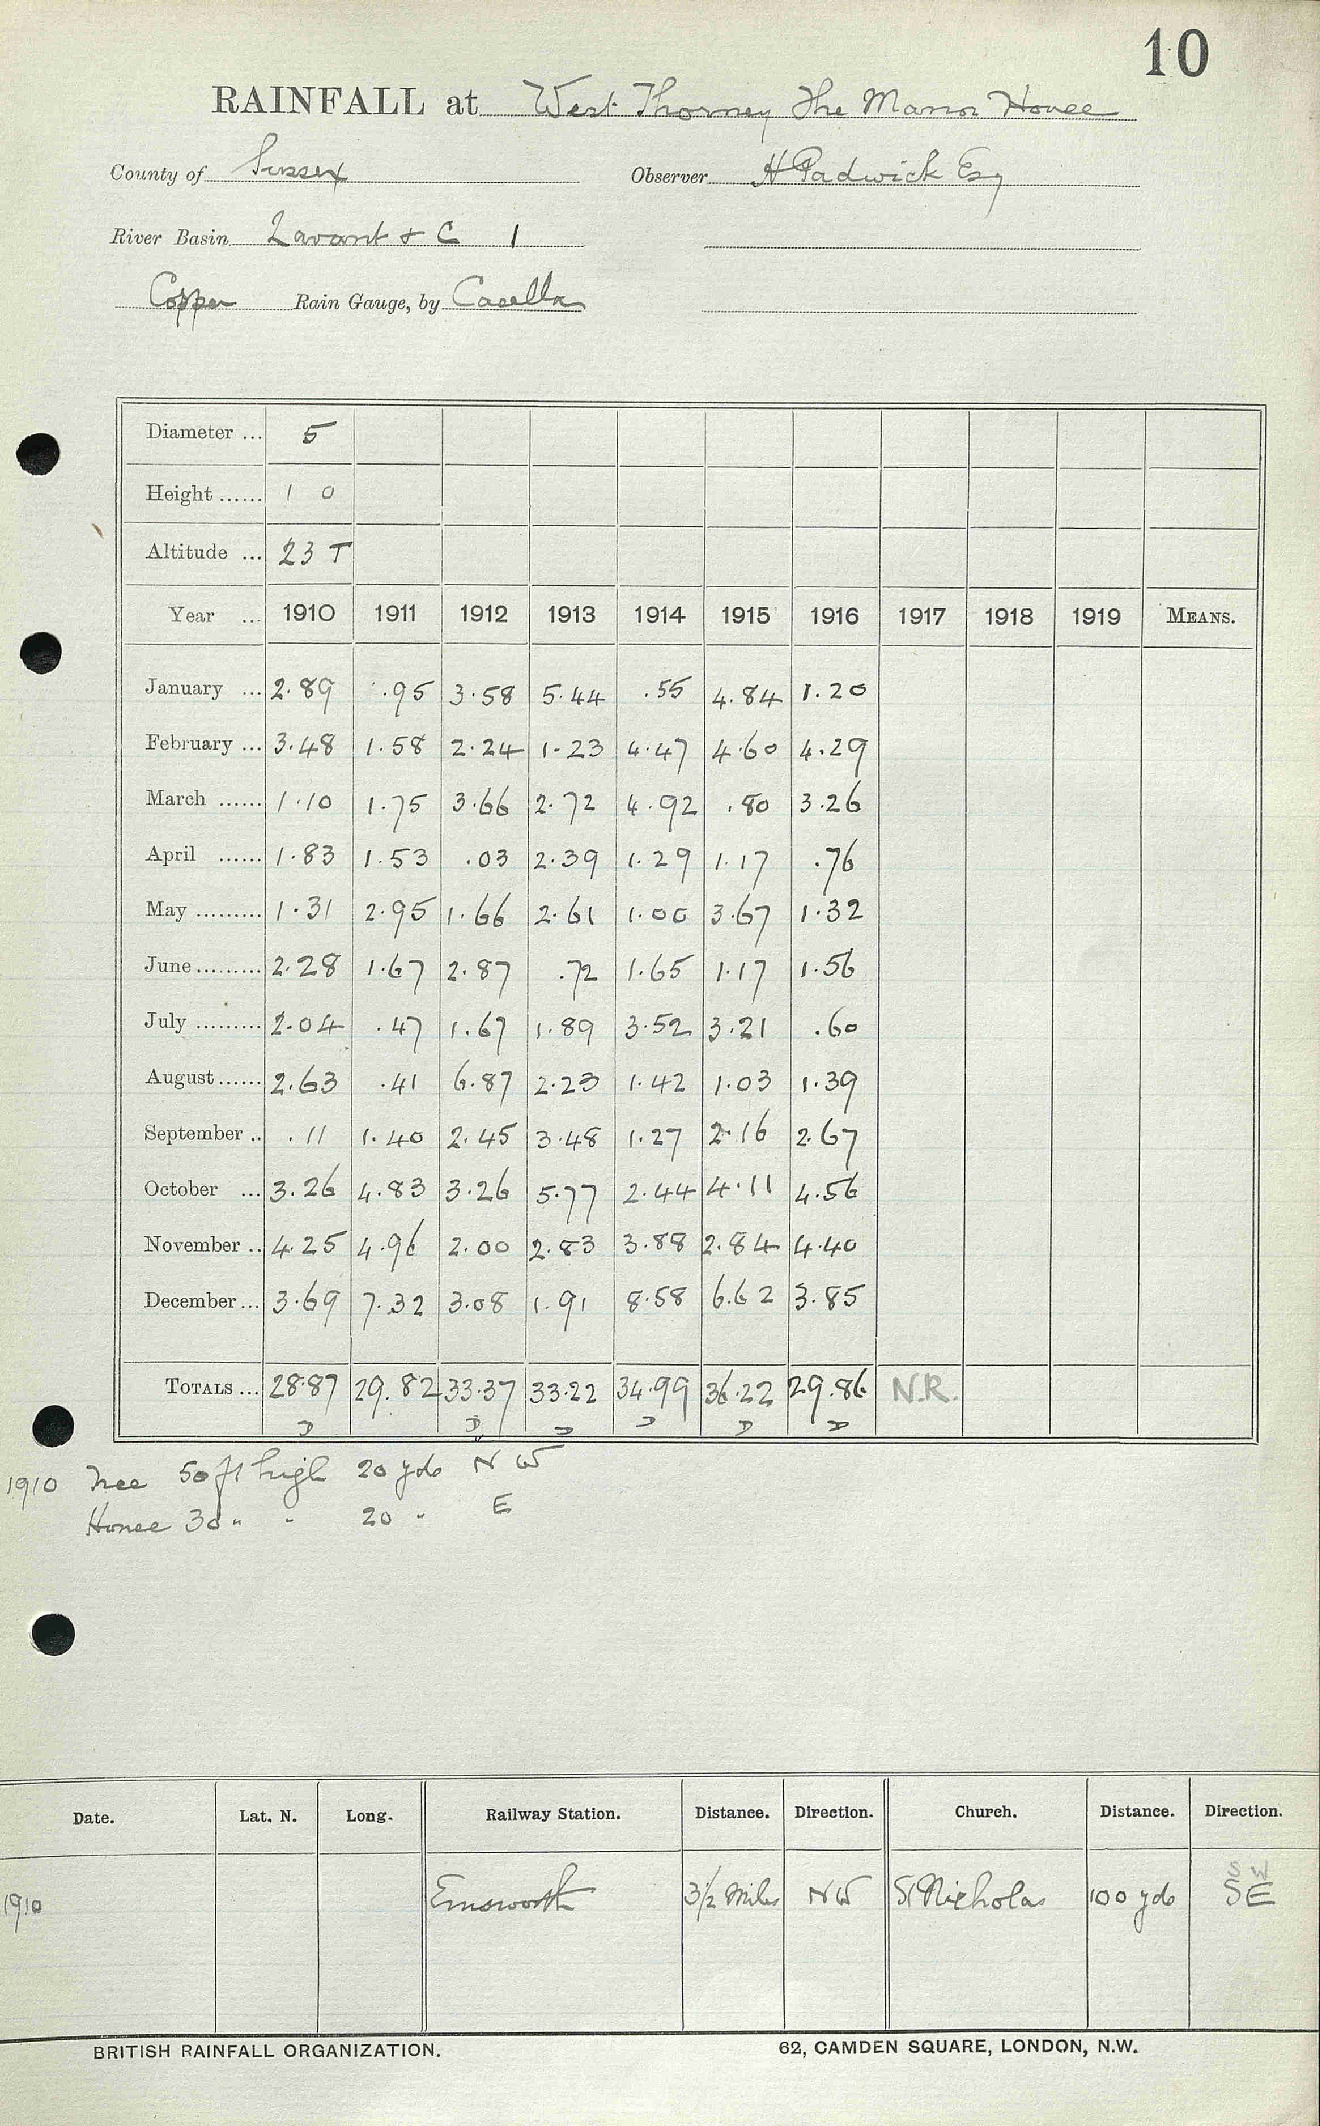 10
RAINFALL at West Thorney The Manor House
County of Sussex Observer H Padwick Esq
River Basin Lavant & C 1
Copper Rain Gauge, by Casella
Diameter ... 5
Height ...... 1 0
Altitude ... 23 T
Year ... 1910 1911 1912 1913 1914 1915 1916 1917 1918 1919 MEANS.
January ... 2.89 .95 3.58 5.44 .55 4.84 1.20
February ... 3.48 1.58 2.24 1.23 4.47 4.60 4.29
March ...... 1.10 1.75 3.66 2.72 4.92 .80 3.26
April ...... 1.83 1.53 .03 2.39 1.29 1.17 .76
May ......... 1.31 2.95 1.66 2.61 1.00 3.67 1.32
June ......... 2.28 1.67 2.87 .72 1.65 1.17 1.56
July ......... 2.04 .47 1.67 1.89 3.52 3.21 .60
August ...... 2.63 .41 6.87 2.23 1.42 1.03 1.39
September .. .11 1.40 2.45 3.48 1.27 2.16 2.67
October ... 3.26 4.83 3.26 5.77 2.44 4.11 4.56
November .. 4.25 4.96 2.00 2.83 3.88 2.84 4.40
December ... 3.69 7.32 3.08 1.91 8.58 6.62 3.85
TOTALS ... 28.87 29.82 33.37 33.22 34.99 36.22 29.86 N.R.
D D D D D D
1910 Tree 50 ft high 20 yds N W
House 30 " " 20 " E
Date. Lat. N. Long. Railway Station. Distance. Direction. Church. Distance. Direction.
S W
1910 Emsworth 3 1/2 Miles NW St Nicholas 100 yds SE
BRITISH RAINFALL ORGANIZATION. 62, CAMDEN SQUARE, LONDON, N.W.